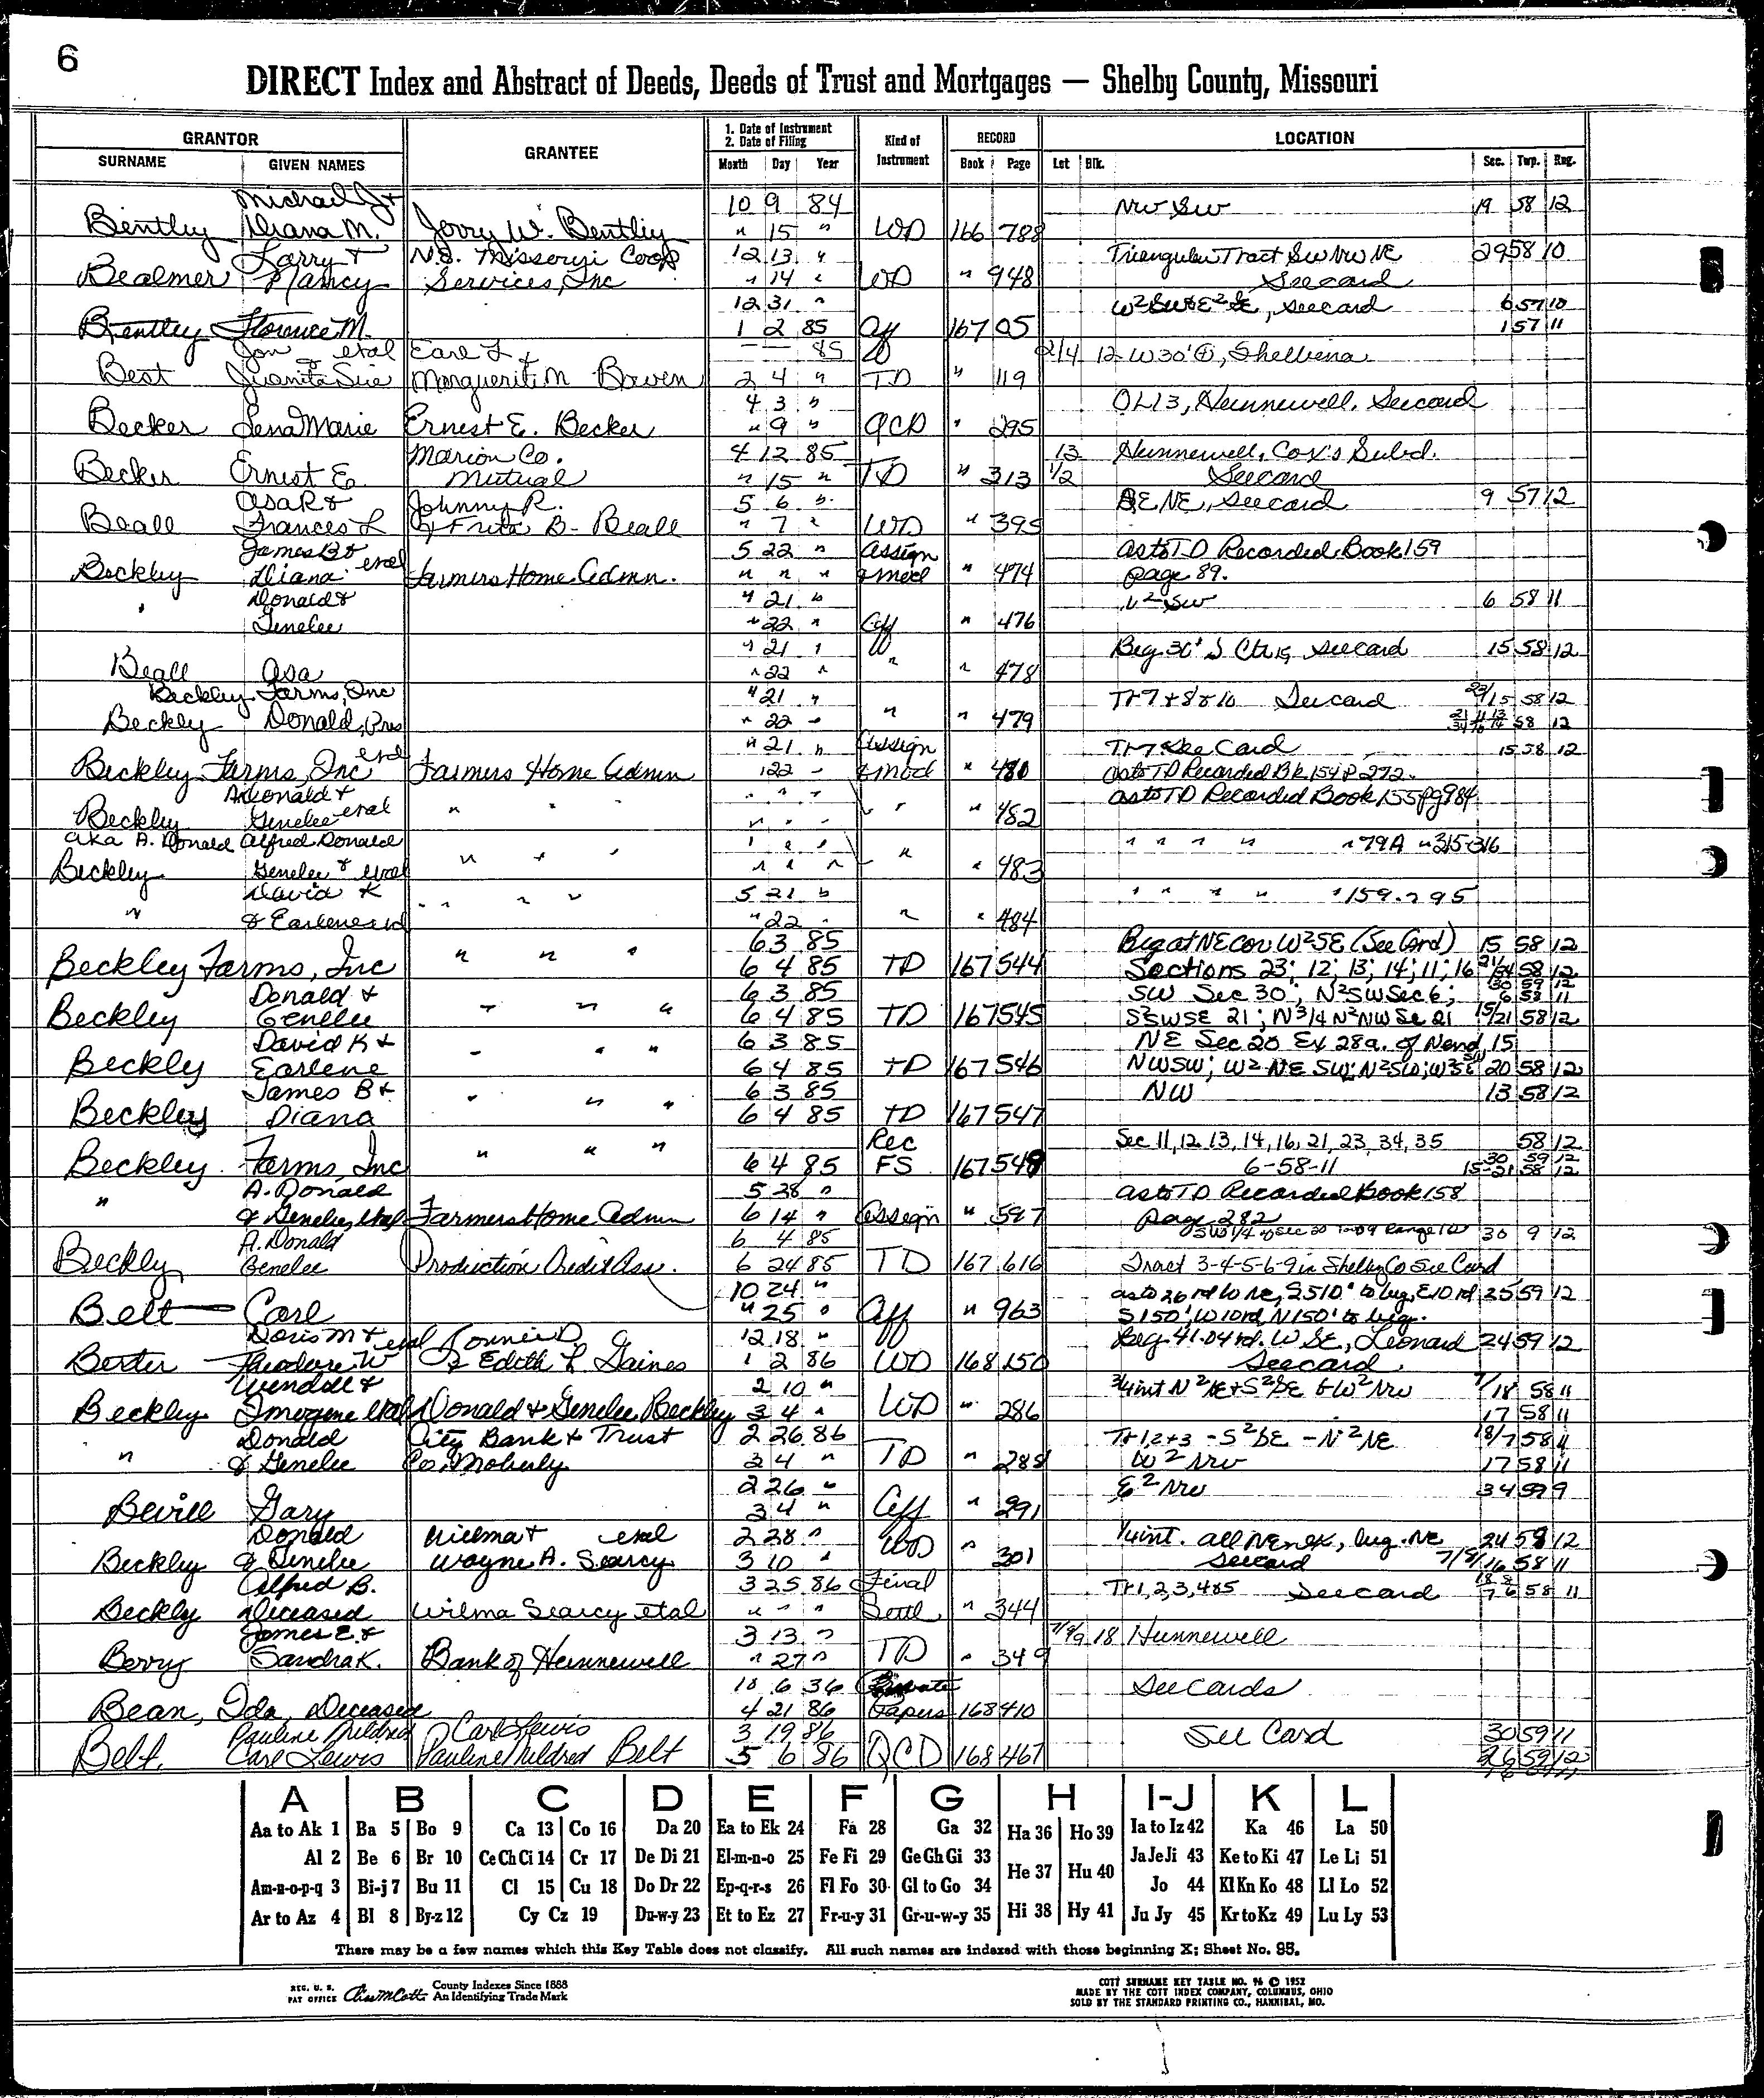 6
DIRECT Index and Abstract of Deeds, Deeds of Trust and Mortgages — Shelby County, Missouri
GRANTOR GRANTEE 1. Date of Instrument 2. Date of Filing Kind of Instrument RECORD LOCATION
SURNAME GIVEN NAMES Month Day Year Book Page Lot Blk. Sec. Twp. Rng.
Michael J + 10 9 84 NW SW 19 58 12
Bentley Diana M. Jerry W. Bentley " 15 " WD 166 788
Larry + N.E. Missouri Coop 12 13 " Triangular Tract SW NW NE 29 58 10
Bealmer Nancy Services, Inc " 14 " WD " 948 See card
12 31 " W²SW E²SE, see card 6 57 10
Bentley Florence M. 1 2 85 Aff 167 05 1 57 11
Jon etal Earl L + — — 85 2/4 12 W30' , Shelbina
Best Juanita Sue Marguerite M Bowen 2 4 " TD " 119
4 3 " OL13, Hunnewell, See card
Becker Lena Marie Ernest E. Becker " 9 " QCD " 295
Marion Co. 4 12 85 13 Hunnewell, Cox's Subd.
Becker Ernest E. Mutual " 15 " TD " 313 1/2 See card
Asa R + Johnny R. 5 6 " SE NE, see card 9 57 12
Beall Frances L & Fritz B. Beall " 7 " WD " 395
James B + etal 5 22 " Assign as to TD Recorded Book 159
Beckley Diana Farmers Home Admn. " " " & mod " 474 page 89.
Donald + " 21 " SW 6 58 11
" Genelee " 22 " Aff " 476
" 21 " Beg 30' S Ctr 15, see card 15 58 12
Beall Asa " 22 " " " 478
Beckley Farms, Inc " 21 " Tr 7 + 8 + 10 See card 23/15 58 12
Beckley Donald, Pres " 22 " " " 479 58 12
etal " 21 " Assign Tr 7 See Card 15 58 12
Beckley Farms, Inc Farmers Home Admn " 22 " & mod " 480 as to TD Recorded Bk 154 P 272.
A Donald + " " " as to TD Recorded Book 155 pg 984
Beckley Genelee etal " " " " " " " " 482
aka A. Donald Alfred Donald " " " " " " " " 79A " 315-316
Beckley Genelee & etal " " " " " " " " 483
David K 5 21 " " " " " " 159 " 295
" & Earlene etal " " " " 22 " " " 484
6 3 85 Beg at NE cor W²SE (See Card) 15 58 12
Beckley Farms, Inc " " " 6 4 85 TD 167 544 Sections 23; 12; 13; 14; 11; 16 58 12
Donald + 6 3 85 SW Sec 30; N²SW Sec 6; 30 59 12 6 58 11
Beckley Genelee " " " 6 4 85 TD 167 545 S²SWSE 21; N3/4 N²NW Se 21 15/21 58 12
David K + 6 3 85 NE Sec 20 Ex 28a. of N end 15
Beckley Earlene " " " 6 4 85 TD 167 546 NWSW; W² NE SW; N²SW; W²SE 20 58 12
James B + 6 3 85 NW 13 58 12
Beckley Diana " " " 6 4 85 TD 167 547
Rec Sec 11, 12, 13, 14, 16, 21, 23, 34, 35 58 12
Beckley Farms, Inc " " " 6 4 85 FS 167 548 6-58-11 30 59 12 15-21 58 12
A. Donald 5 28 " as to TD Recorded Book 158
" & Genelee, etal Farmers Home Admn 6 14 " Assign " 587 page 282
A. Donald 6 4 85 SW 1/4 of Sec 30 Range 12 30 9 12
Beckly Genelee Production Credit Ass. 6 24 85 TD 167 616 Tract 3-4-5-6-9 in Shelby Co See Card
10 24 " as to 26 rd W NE, S 510' to beg, E 10 rd 25 59 12
Belt Carl " 25 " Aff " 963 S 150', W 10 rd, N 150' to beg.
Doris M + etal Ronnie D. 12 18 " Beg 41.04 rd. W SE, Leonard 24 59 12
Bester Theodore W & Edith L Gaines 1 2 86 WD 168 150 See card.
Wendell + 2 10 " 3/4 int N²NE + S²SE + W²NW 7/18 58 11
Beckley Imogene etal Donald + Genelee Beckley 3 4 " WD " 286 17 58 11
Donald City Bank + Trust 2 26 86 Tr 1, 2 + 3 - S²SE - N²NE 18/7 58 11
" & Genelee Co. Moberly 3 4 " TD " 288 W² NW 17 58 11
2 26 " E² NW 34 59 9
Bevill Gary 3 4 " Aff " 291
Donald Wilma + etal 2 28 " WD 1/4 int. all NE, beg. NE 24 59 12
Beckley & Genelee Wayne A. Searcy 3 10 " " 301 see card 7/8/16 58 11
Alfred B. 3 25 86 Final Tr 1, 2, 3, 4 & 5 see card 58 11
Beckly Deceased Wilma Searcy etal " " " Settl " 344
James E. + 3 13 " 7/8/9 18 Hunnewell
Berry Sandra K. Bank of Hunnewell " 27 " TD " 349
10 6 36 Probate See Cards
Bean, Ida, Deceased 4 21 86 Papers 168 410
Pauline Mildred Carl Lewis 3 19 86 See Card 30 59 11
Belt, Carl Lewis Pauline Mildred Belt 5 6 86 QCD 168 467 26 59 12
A B C D E F G H I-J K L
Aa to Ak 1 Ba 5 Bo 9 Ca 13 Co 16 Da 20 Ea to Ek 24 Fa 28 Ga 32 Ha 36 Ho 39 Ia to Iz 42 Ka 46 La 50
Al 2 Be 6 Br 10 Ce Ch Ci 14 Cr 17 De Di 21 El-m-n-o 25 Fe Fi 29 Ge Gh Gi 33 He 37 Hu 40 Ja Je Ji 43 Ke to Ki 47 Le Li 51
Am-n-o-p-q 3 Bi-j 7 Bu 11 Cl 15 Cu 18 Do Dr 22 Ep-q-r-s 26 Fl Fo 30 Gl to Go 34 Jo 44 Kl Kn Ko 48 Ll Lo 52
Ar to Az 4 Bl 8 By-z 12 Cy Cz 19 Du-w-y 23 Et to Ez 27 Fr-u-y 31 Gr-u-w-y 35 Hi 38 Hy 41 Ju Jy 45 Kr to Kz 49 Lu Ly 53
There may be a few names which this Key Table does not classify. All such names are indexed with those beginning X; Sheet No. 95.
REG. U. S. PAT OFFICE County Indexes Since 1888 An Identifying Trade Mark
COTT SURNAME KEY TABLE NO. 96 © 1952
MADE BY THE COTT INDEX COMPANY, COLUMBUS, OHIO
SOLD BY THE STANDARD PRINTING CO., HANNIBAL, MO.